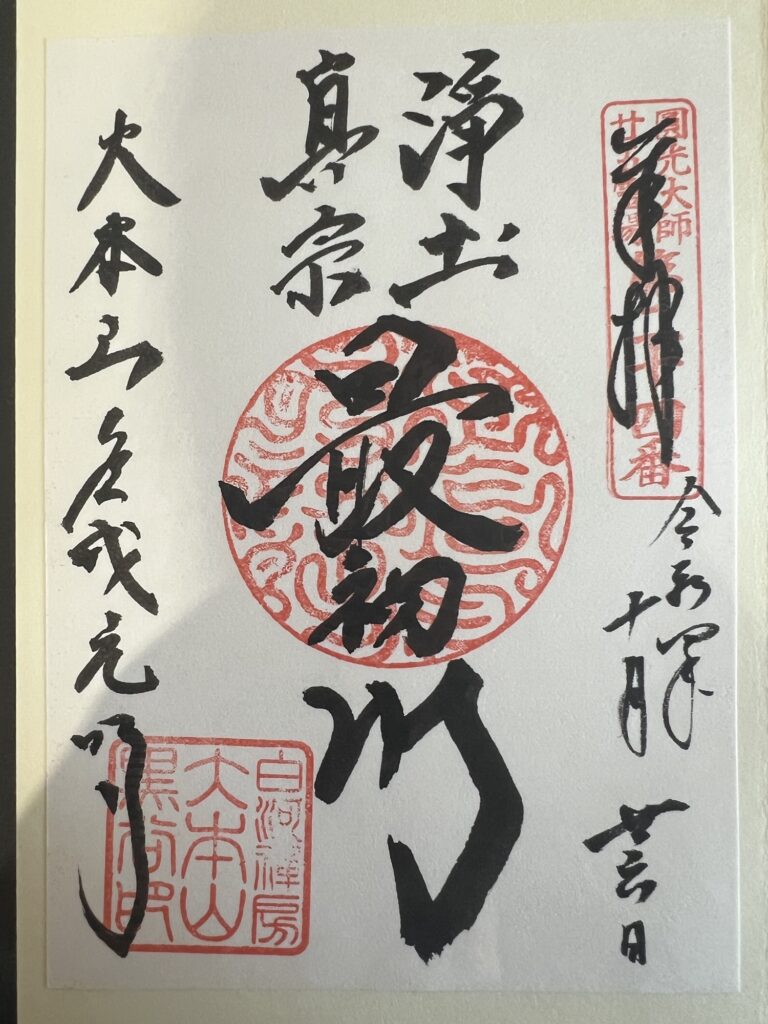 圓光大師
廿五霊場
第二十四番
奉拝
令和四年
十月
廿六日
浄土
真宗
最初門
大本山金戒光明寺
白河禅房
大本山
黒谷印